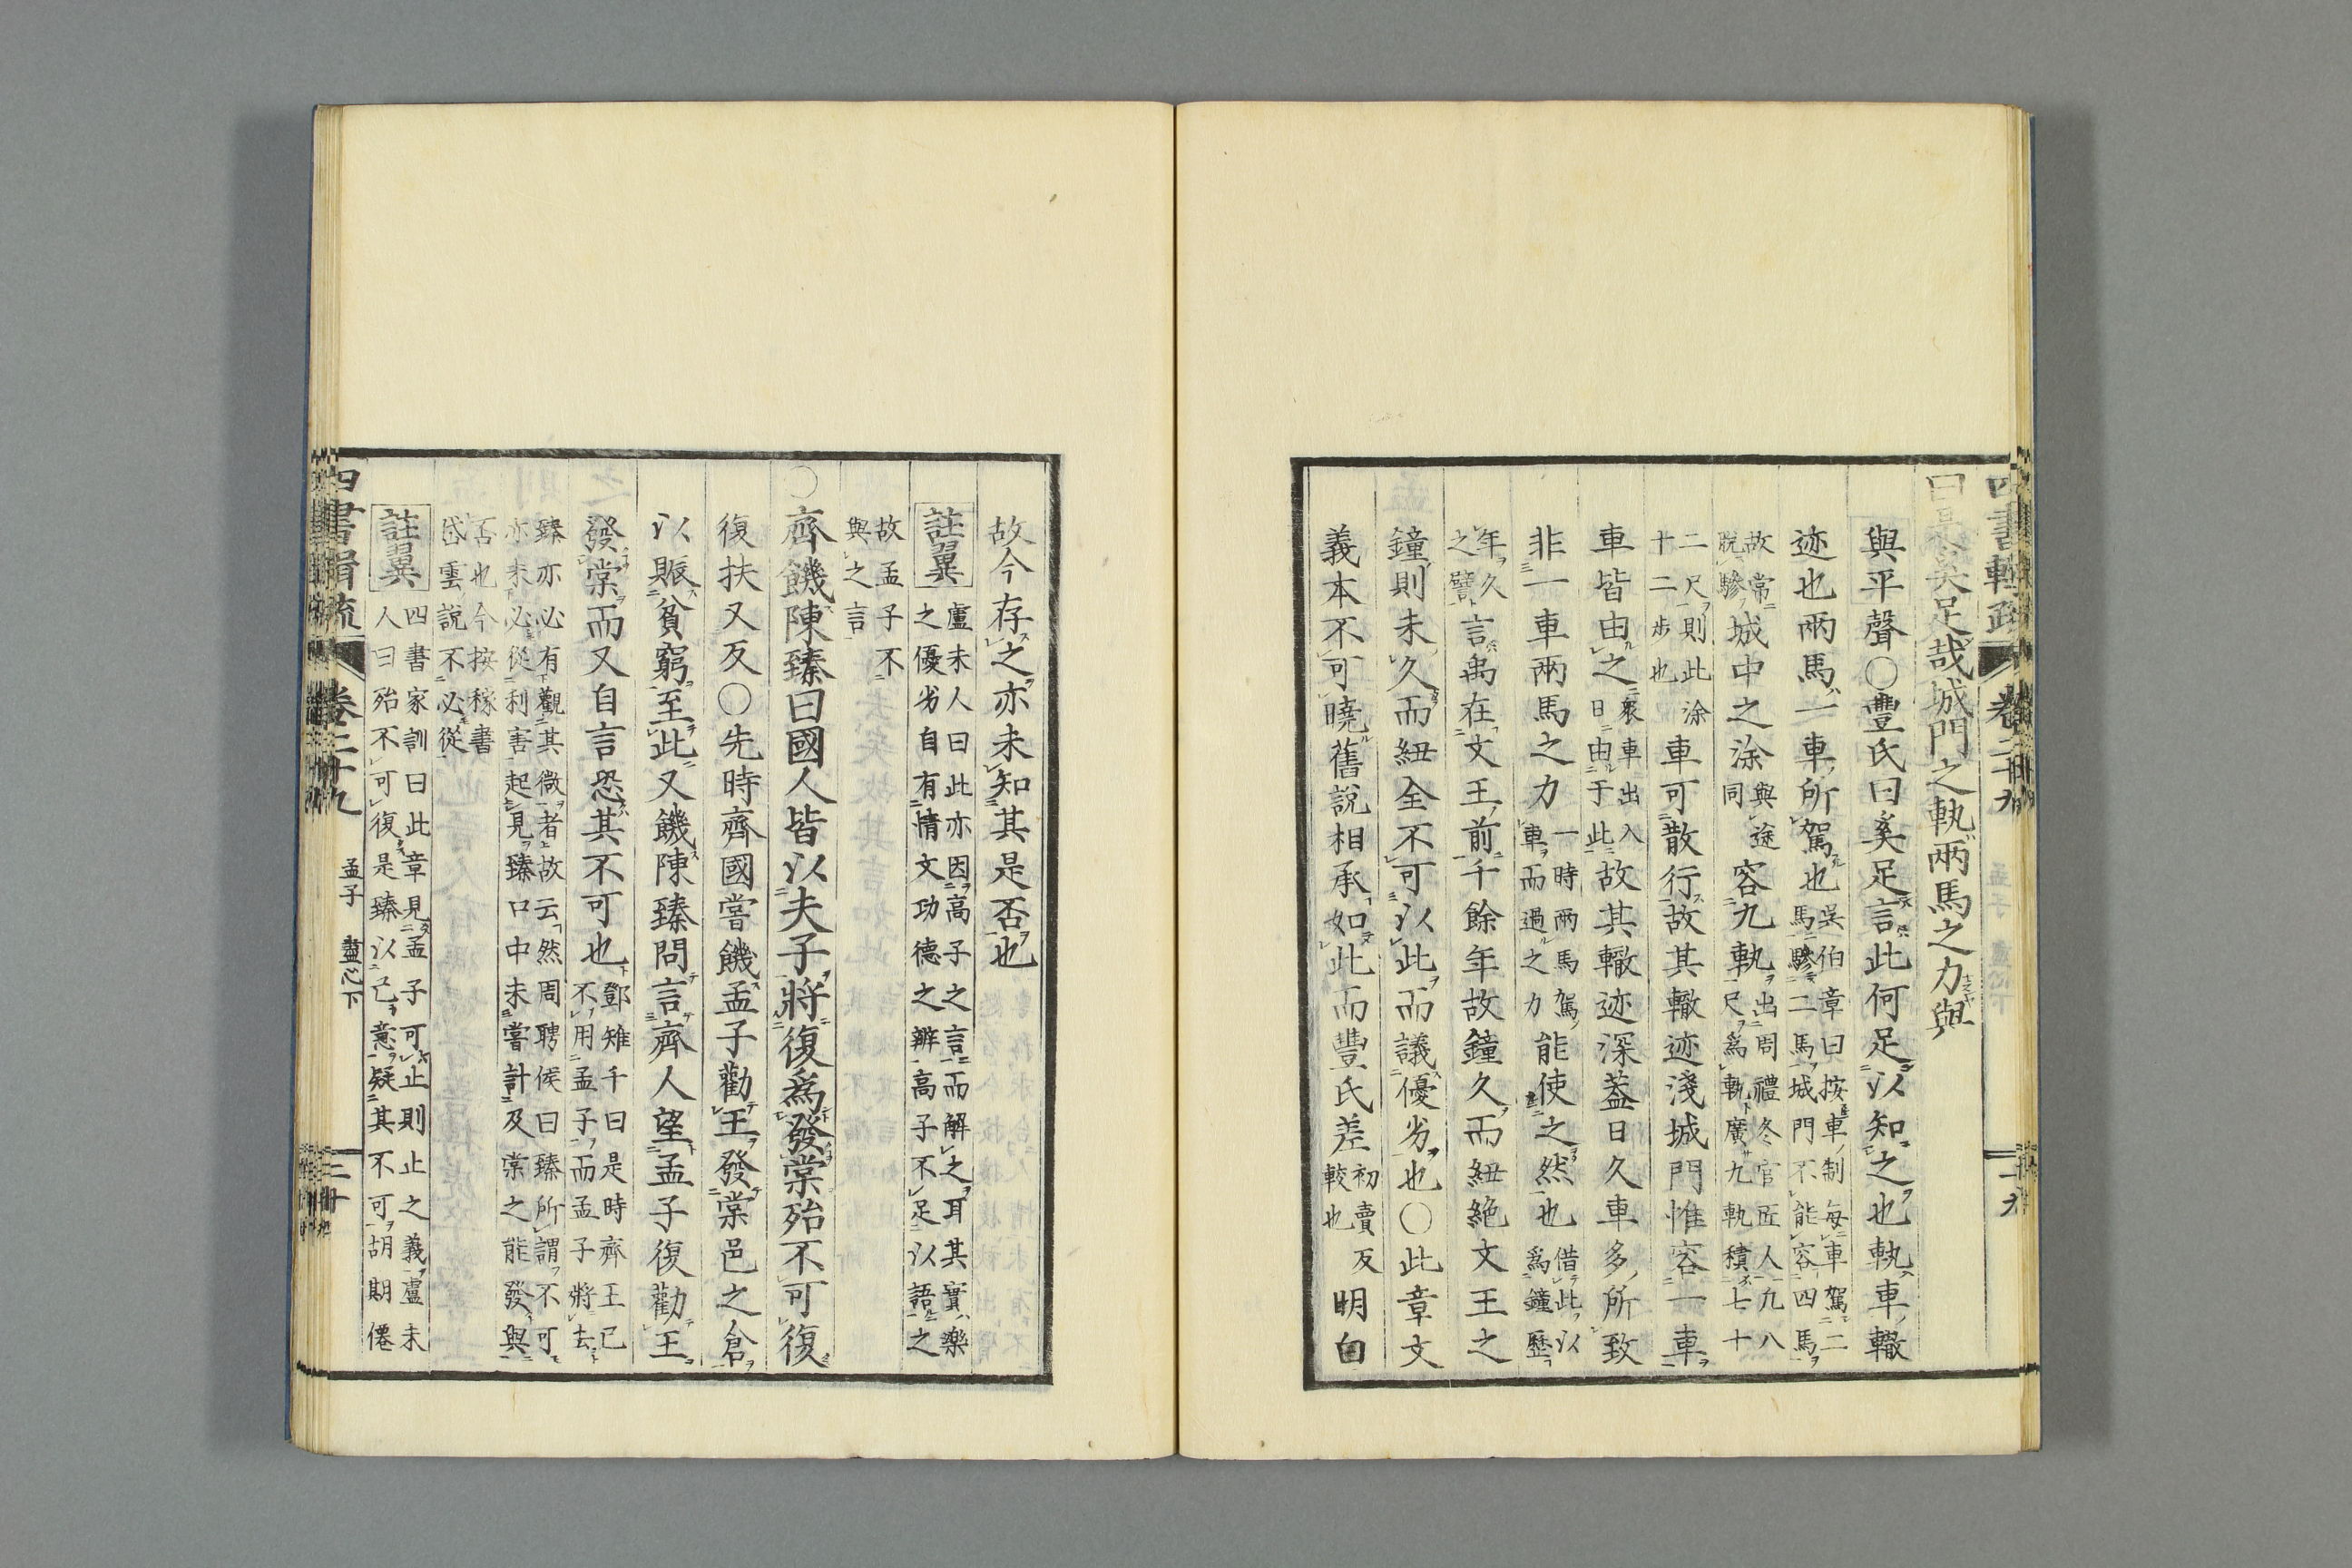 曰是奚足哉城門之軌兩馬之力與
與平聲○豐氏曰奚足言此何足以知之也軌車轍
迹也兩馬一車所駕也
吳伯章曰按車制每車駕二
馬驂二馬城門不能容四馬
故常
脫驂
城中之涂
與途
同
容九軌
出周禮冬官匠人一九八
尺爲軌廣九軌積七十
二尺則此涂
十二步也
車可散行故其轍迹淺城門惟容一車
車皆由之
衆車出入
日由于此
故其轍迹深蓋日久車多所致
非一車兩馬之力
一時兩馬駕
車而過之力
能使之然也
借此以
爲鐘歷
年久
之譬
言禹在文王前千餘年故鐘久而紐絶文王之
鐘則未久而紐全不可以此而議優劣也○此章文
義本不可曉舊說相承如此而豐氏差
初賣反
較也
明白
故今存之亦未知其是否也
註翼
盧未人曰此亦因高子之言而解之耳其實樂
之優劣自有情文功德之辨高子不足以語之
故孟子不
與之言
○齊饑陳臻曰國人皆以夫子將復爲發棠殆不可復
復扶又反○先時齊國嘗饑孟子勸王發棠邑之倉
以賑貧窮至此又饑陳臻問言齊人望孟子復勸王
發棠而又自言恐其不可也
鄧雉千曰是時齊王已
不用孟子而孟子將去
臻亦必有觀其微者故云然周聘侯曰臻所謂不可
亦未必從利害起見臻口中未嘗計及棠之能發與
否也今按稼書
岱雲說不必從
註翼
四書家訓曰此章見孟子可止則止之義盧未
人曰殆不可復是臻以己意疑其不可胡期僊
卷二十九
孟子 盡心下
二十